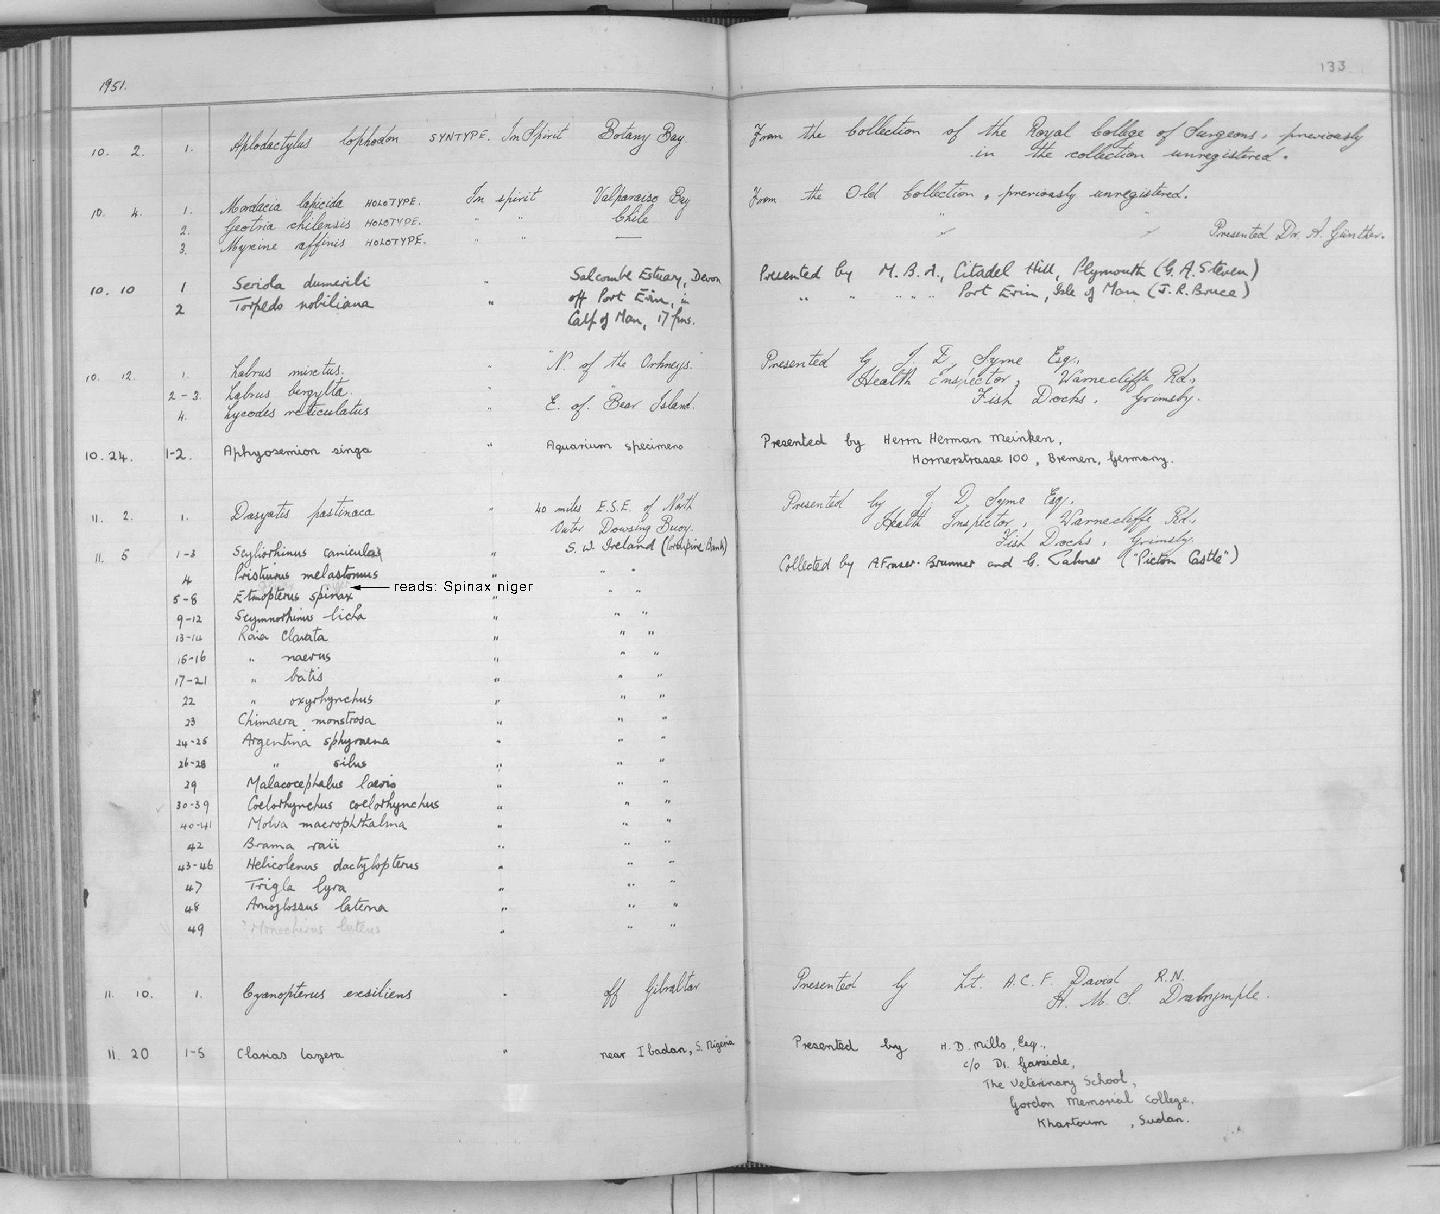 1951.
133
10. 2. 1. Aplodactylus lophodon SYNTYPE. In Spirit Botany Bay. From the Collection of the Royal College of Surgeons, previously
in the collection unregistered.
10. 4. 1. Mordacia lapicida HOLOTYPE. In spirit Valparaiso Bay From the Old Collection, previously unregistered.
2. Geotria chilensis HOLOTYPE. " " Chile " " Presented Dr. A. Günther.
3. Myxine affinis HOLOTYPE. " " —
10. 10 1 Seriola dumerili " Salcombe Estuary, Devon Presented by M.B.A., Citadel Hill, Plymouth (G.A. Steven)
2 Torpedo nobiliana " off Port Erin, in " " " " " Port Erin, Isle of Man (J.R. Bruce)
Calf of Man, 17 fms.
10. 12. 1. Labrus mixtus. " "N. of the Orkneys." Presented by J. D. Syme Esq.,
2-3. Labrus bergylta. " Health Inspector, Warnecliffe Rd.,
4. Lycodes reticulatus " E. of Bear Island. Fish Docks, Grimsby.
10. 24. 1-2. Aphyosemion singa " Aquarium specimens Presented by Herrn Herman Meinken,
Hornerstrasse 100, Bremen, Germany.
11. 2. 1. Dasyatis pastinaca " 40 miles E.S.E. of North Presented by J. D. Syme Esq.
Outer Dowsing Buoy. Health Inspector, Warnecliffe Rd.,
Fish Docks, Grimsby.
11. 5 1-3 Scyliorhinus canicula " S.W. Ireland (Porcupine Bank) Collected by A. Fraser-Brunner and G. Palmer ("Picton Castle")
4 Pristiurus melastomus " " "
5-8 Etmopterus spinax reads: Spinax niger " " "
9-12 Scymnorhinus licha " " "
13-14 Raia clavata " " "
15-16 " naevus " " "
17-21 " batis " " "
22 " oxyrhynchus " " "
23 Chimaera monstrosa " " "
24-25 Argentina sphyraena " " "
26-28 " silus " " "
29 Malacocephalus laevis " " "
30-39 Coelorhynchus coelorhynchus " " "
40-41 Molva macrophthalma " " "
42 Brama raii " " "
43-46 Helicolenus dactylopterus " " "
47 Trigla lyra " " "
48 Arnoglossus laterna " " "
49 ? Monochirus luteus " " "
11. 10. 1. Cyanopterus exsiliens " off Gibraltar Presented by Lt. A.C.F. David R.N.
H. M. S. Dalrymple.
11. 20 1-5 Clarias lazera " near Ibadan, S. Nigeria Presented by H. D. Mills, Esq.,
c/o Dr. Garside,
The Veterinary School,
Gordon Memorial College,
Khartoum, Sudan.